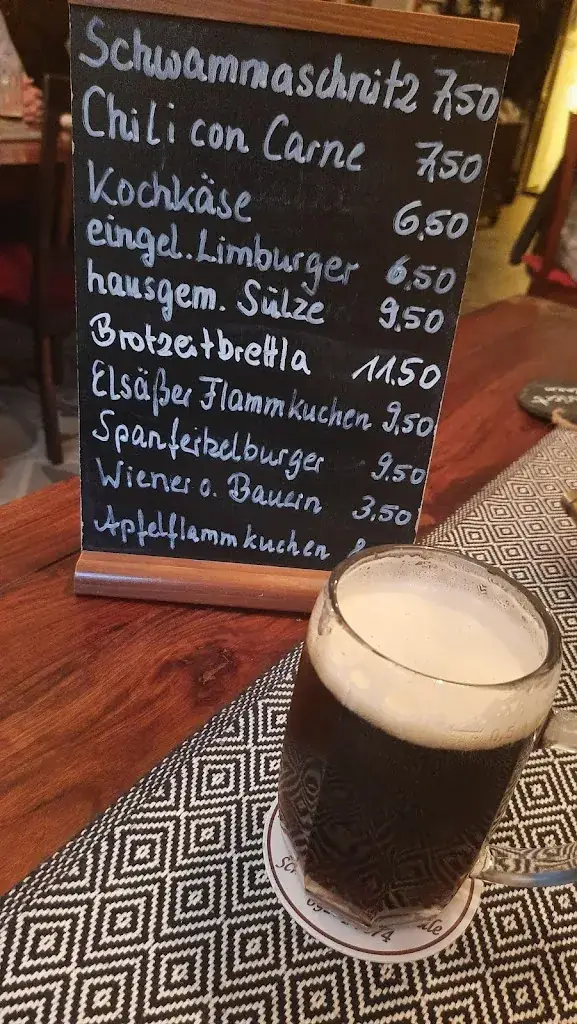 Schwammaschnitz 7,50
Chili con Carne 7,50
Kochkäse 6,50
eingel. Limburger 6,50
hausgem. Sülze 9,50
Brotzeitbrettla 11.50
Elsäßer Flammkuchen 9,50
Spanferkelburger 9.50
Wiener o. Bauern 3.50
Apfelflammkuchen